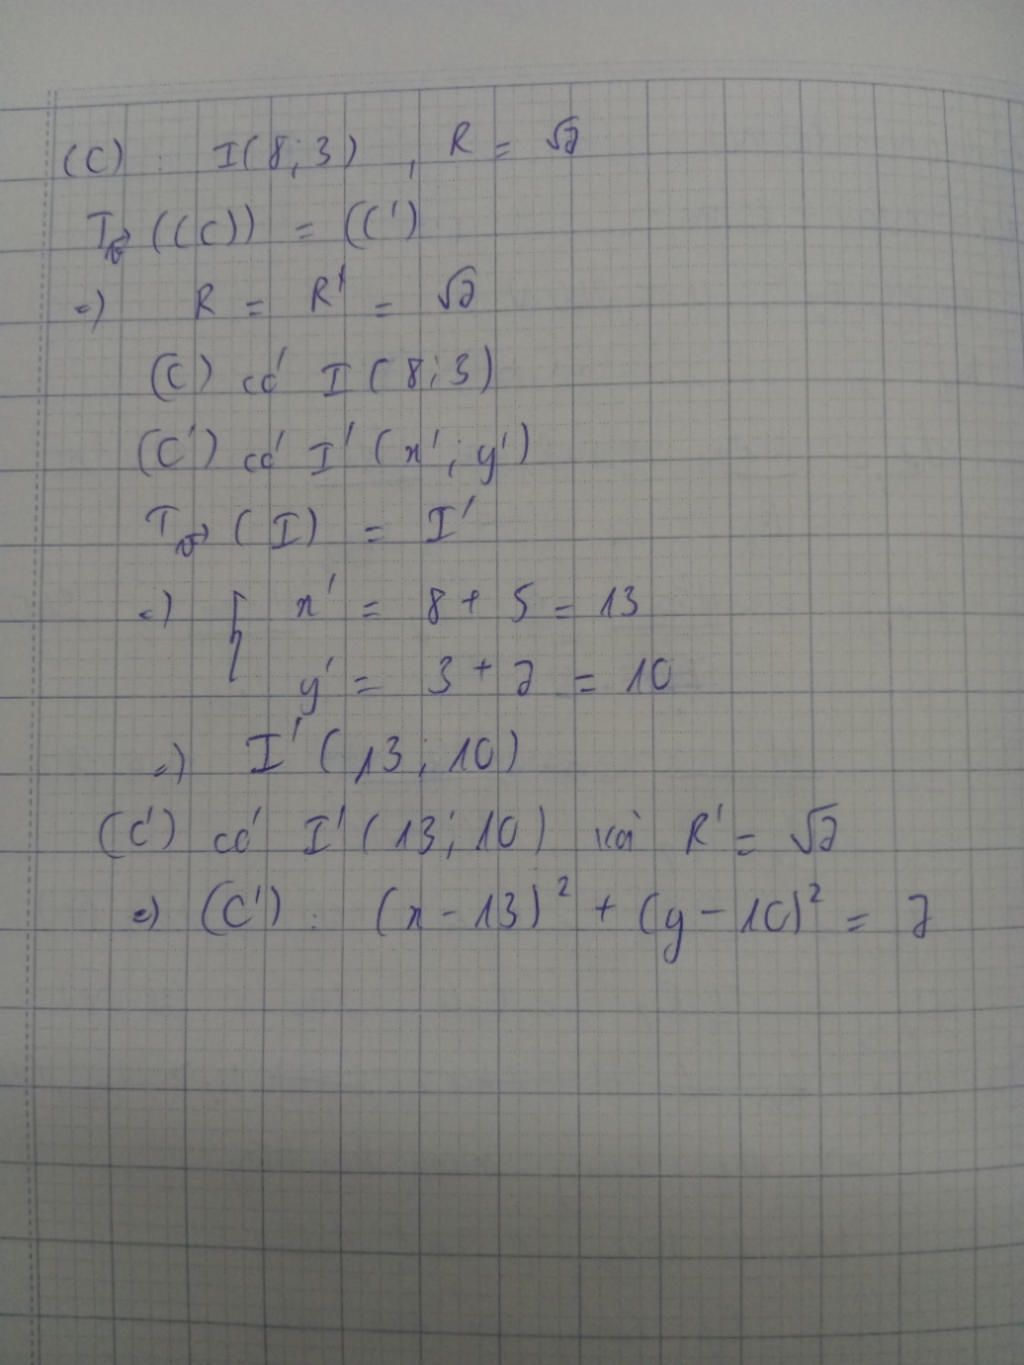 (C) : I(8;3) , R = √7
T_v⃗ ((C)) = (C')
=) R = R' = √7
(C) có I(8;3)
(C') có I'(x';y')
T_v⃗ (I) = I'
=) { x' = 8 + 5 = 13
y' = 3 + 7 = 10
=) I'(13;10)
(C') có I'(13;10) và R' = √7
=) (C') : (x - 13)² + (y - 10)² = 7